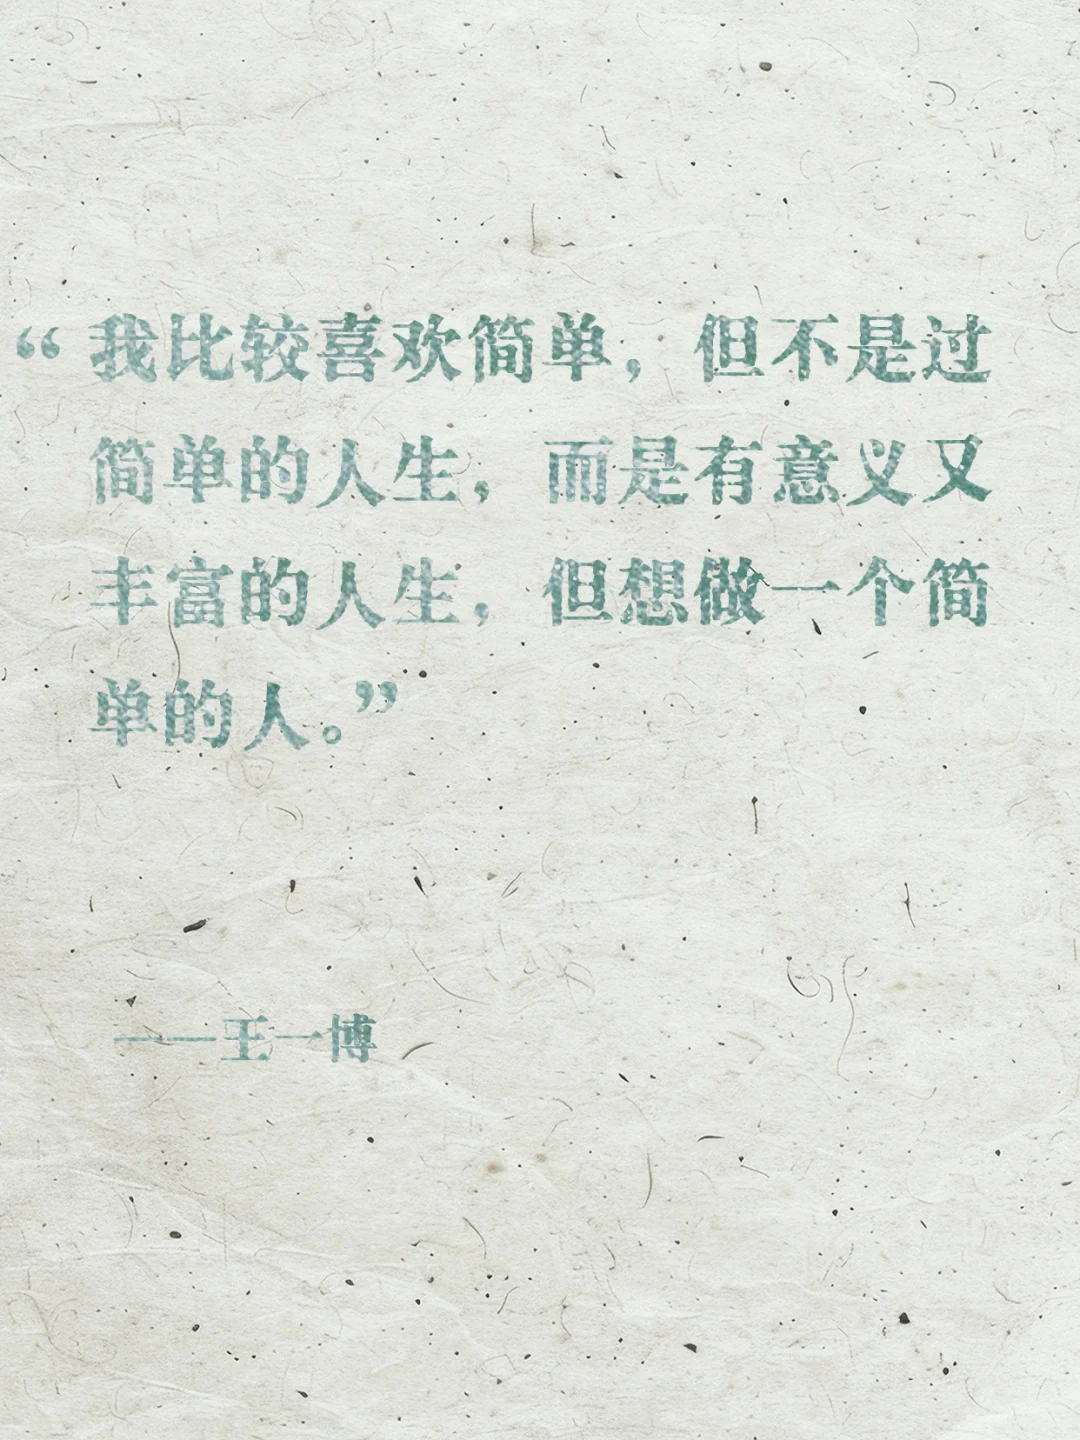 “我比较喜欢简单，但不是过
简单的人生，而是有意义又
丰富的人生，但想做一个简
单的人。”
——王一博